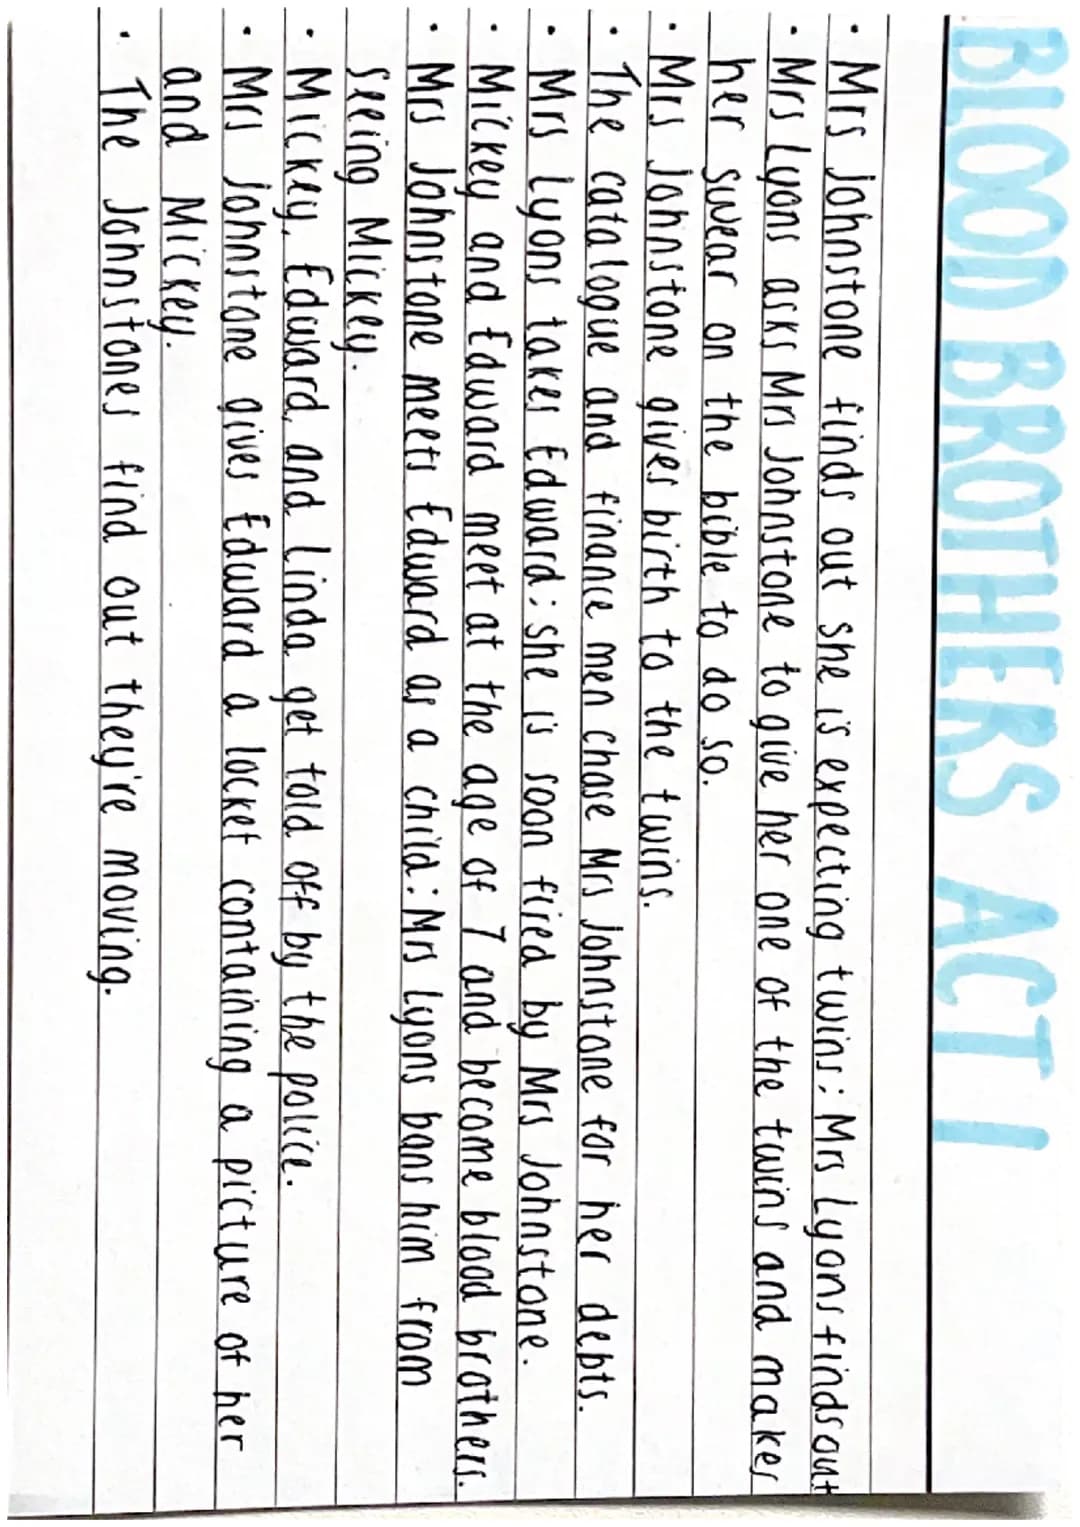 BLOOD BROTHERS ACT 1
• Mrs Johnstone finds out she is expecting twins: Mrs Lyons finds out
• Mrs Lyons asks Mrs Johnstone to give her one of the twins and makes
her swear on the bible to do so.
• Mrs Johnstone gives birth to the twins.
• The catalogue and finance men chase Mrs Johnstone for her depts.
• Mrs Lyons takes Edward: she is soon fired by Mrs Johnstone.
• Mickey and Edward meet at the age of 7 and become blood brothers.
• Mrs Johnstone meets Edward as a child: Mrs Lyons bans him from
seeing Mickey.
• Mickey, Edward, and Linda get told off by the police.
• Mrs Johnstone gives Edward a locket containing a picture of her
and Mickey.
• The Johnstones find out they're moving.